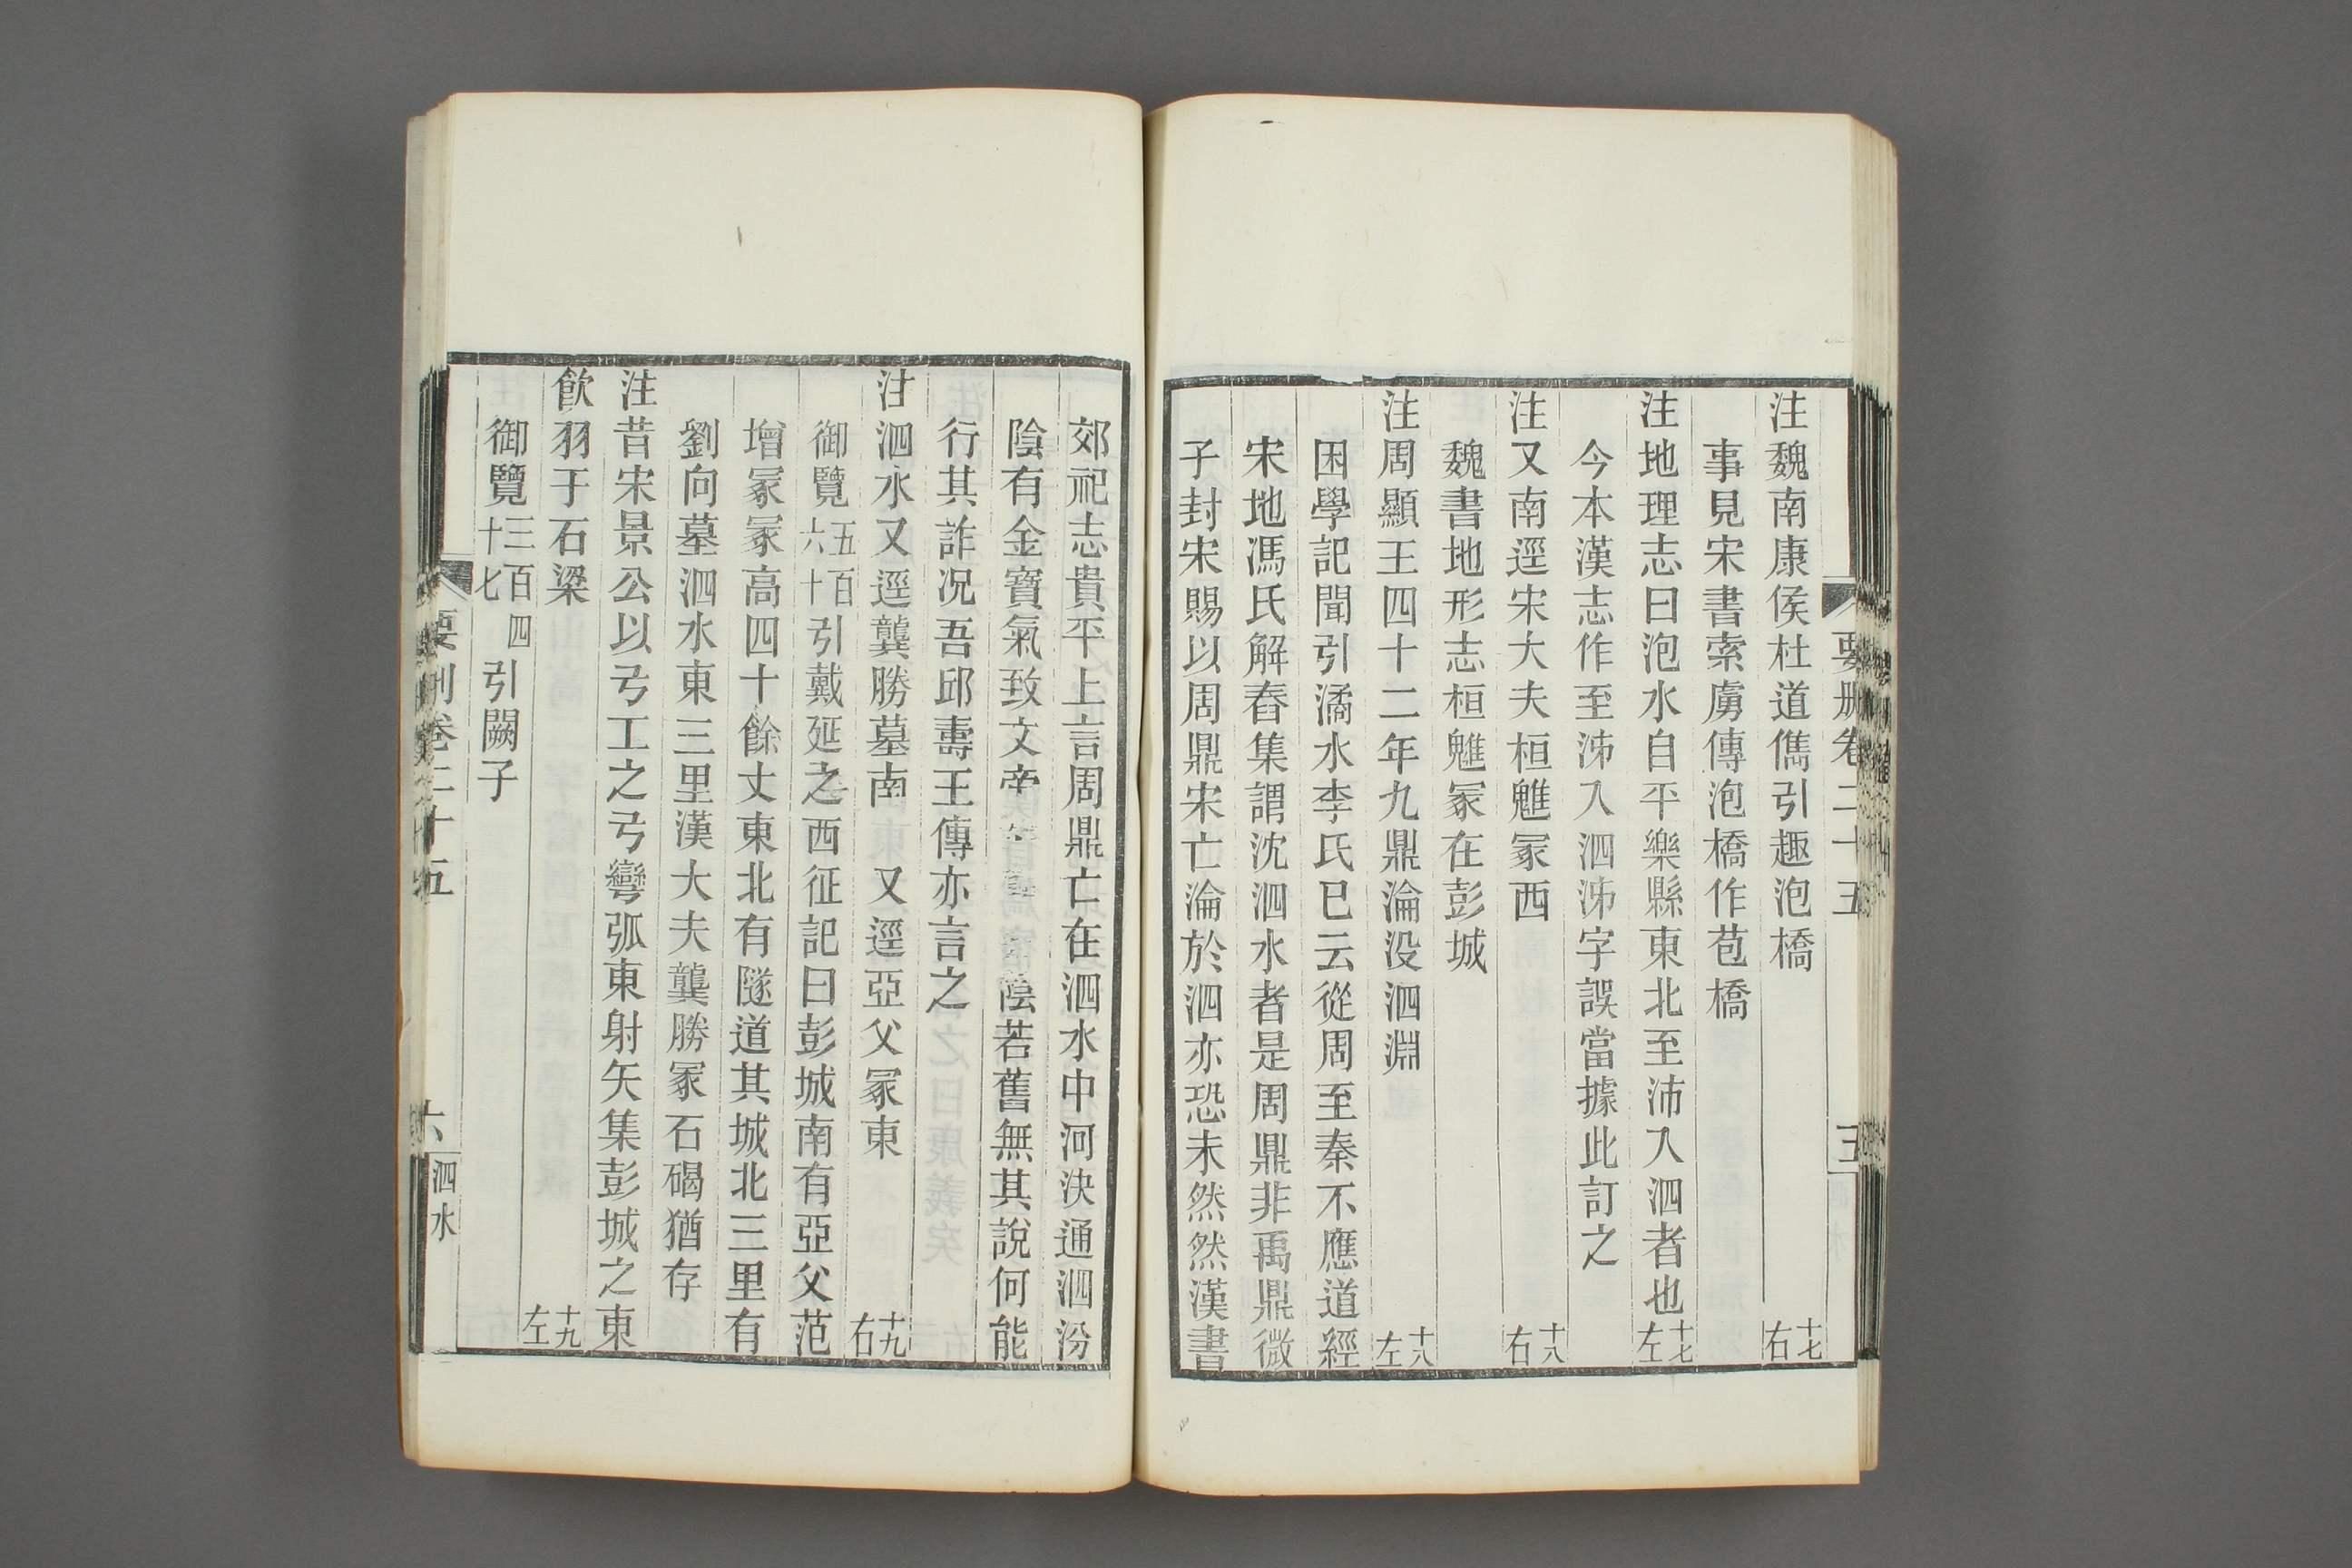 要刪卷二十五 五
注魏南康侯杜道儁引趣泡橋 十七右
事見宋書索虜傳泡橋作苞橋
注地理志曰泡水自平樂縣東北至沛入泗者也 十七左
今本漢志作至泲入泗泲字誤當據此訂之
注又南逕宋大夫桓魋冢西 十八右
魏書地形志桓魋冢在彭城
注周顯王四十二年九鼎淪没泗淵 十八左
困學記聞引潏水李氏已云從周至秦不應道經
宋地馮氏解舂集謂沈泗水者是周鼎非禹鼎微
子封宋賜以周鼎宋亡淪於泗亦恐未然然漢書
郊祀志貴平上言周鼎亡在泗水中河決通泗汾
陰有金寶氣致文帝 陰若舊無其說何能
行其詐况吾邱壽王傳亦言之
注泗水又逕龔勝墓南 又逕亞父冢東 十九右
御覽五百六十引戴延之西征記曰彭城南有亞父范
增冢冢高四十餘丈東北有隧道其城北三里有
劉向墓泗水東三里漢大夫龔勝冢石碣猶存
注昔宋景公以弓工之弓彎弧東射矢集彭城之東
飲羽于石梁 十九左
御覽三百四十七引闕子
要刪卷二十五 六 泗水